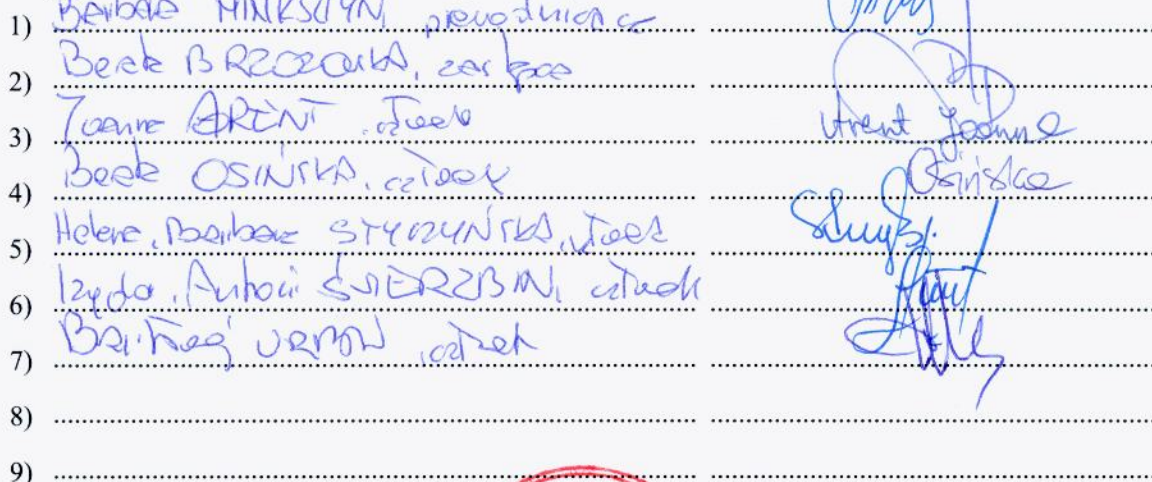 1) Barbara MINKSZTYN, przewodnicząca
2) Beata BRZOZOWSKA, zastępca
3) Joanna ARENT, członek Arent Joanna
4) Beata OSIŃSKA, członek Osińska
5) Helena, Barbara STYCZYŃSKA, członek
6) Izydor, Antoni ŚWIERZBIN, członek
7) Bartłomiej URBAN, członek
8)
9)